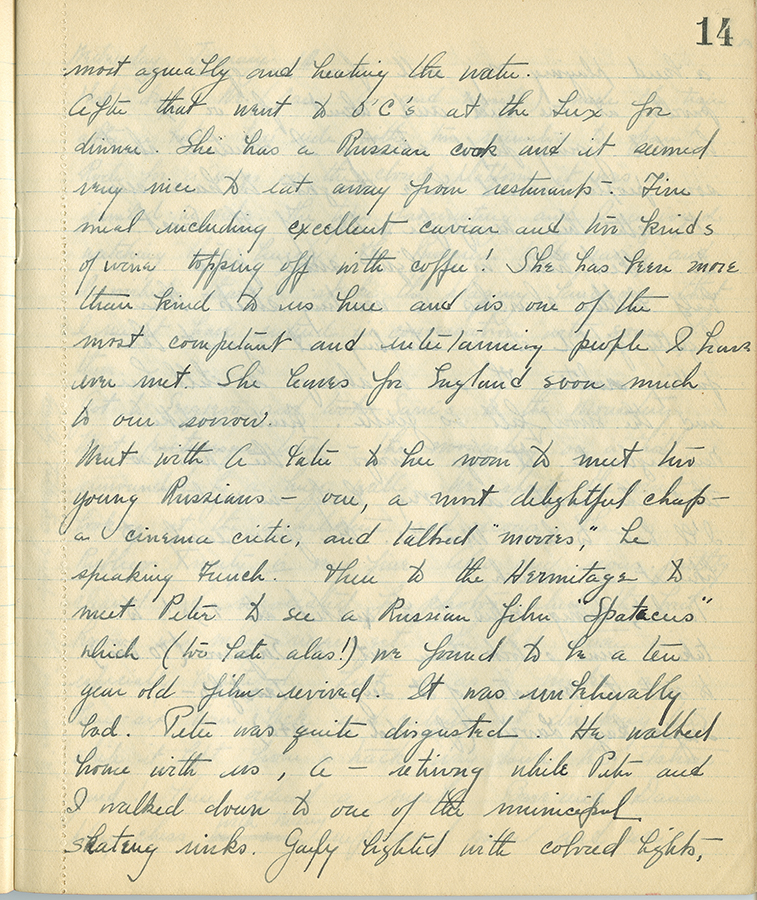 14
most agreeably and heating the water.
After that went to O'C's at the Lux for
dinner. She has a Russian cook and it seemed
very nice to eat away from resturants-. Fine
meal including excellent caviar and two kinds
of wine topping off with coffee! She has been more
than kind to us here and is one of the
most competant and entertaining people I have
ever met. She leaves for England soon much
to our sorrow.
Went with A later to her room to meet two
young Russians – one, a most delightful chap –
a cinema critic, and talked "movies," he
speaking French. Then to the Hermitage to
meet Peter to see a Russian film "Spatacus"
which (too late alas!) we found to be a ten
year old – film revived. It was unbelievably
bad. Peter was quite disgusted. He walked
home with us, A – retiring while Peter and
I walked down to one of the municipal
skating rinks. Gayly lighted with colored lights,